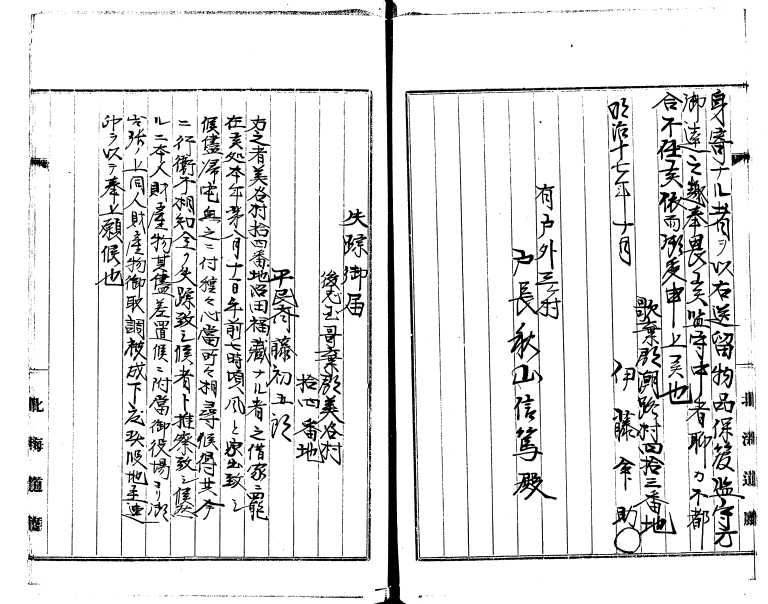 身寄ナル者ヲ以右送留物品保管監守方
御達之趣奉畏候監守中者聊カ不都
合不仕候依而御受申上候也
歌棄郡潮路村四拾三番地
明治十七年十月
伊藤
有戸外三ヶ村
戸長秋山信篤殿
失踪御届
歌棄郡美谷村
拾四番地
平民斉藤初五郎
右之者美谷村拾四番地沼田福蔵ナル者之借家ニ罷
在候処本年第八月十一日午前七時頃風と家出致シ
候儘帰宅無之ニ付種々心当可所相尋候得共今
ニ行衛不相知全ク失踪致シ候者ト推察致シ候然
ルニ本人財産物其儘差置候ニ附当御役場ヨリ御
出張ノ上同人財産物御取調被成下度此段地主連
印ヲ以テ奉上願候也
北海道廳
北海道廳